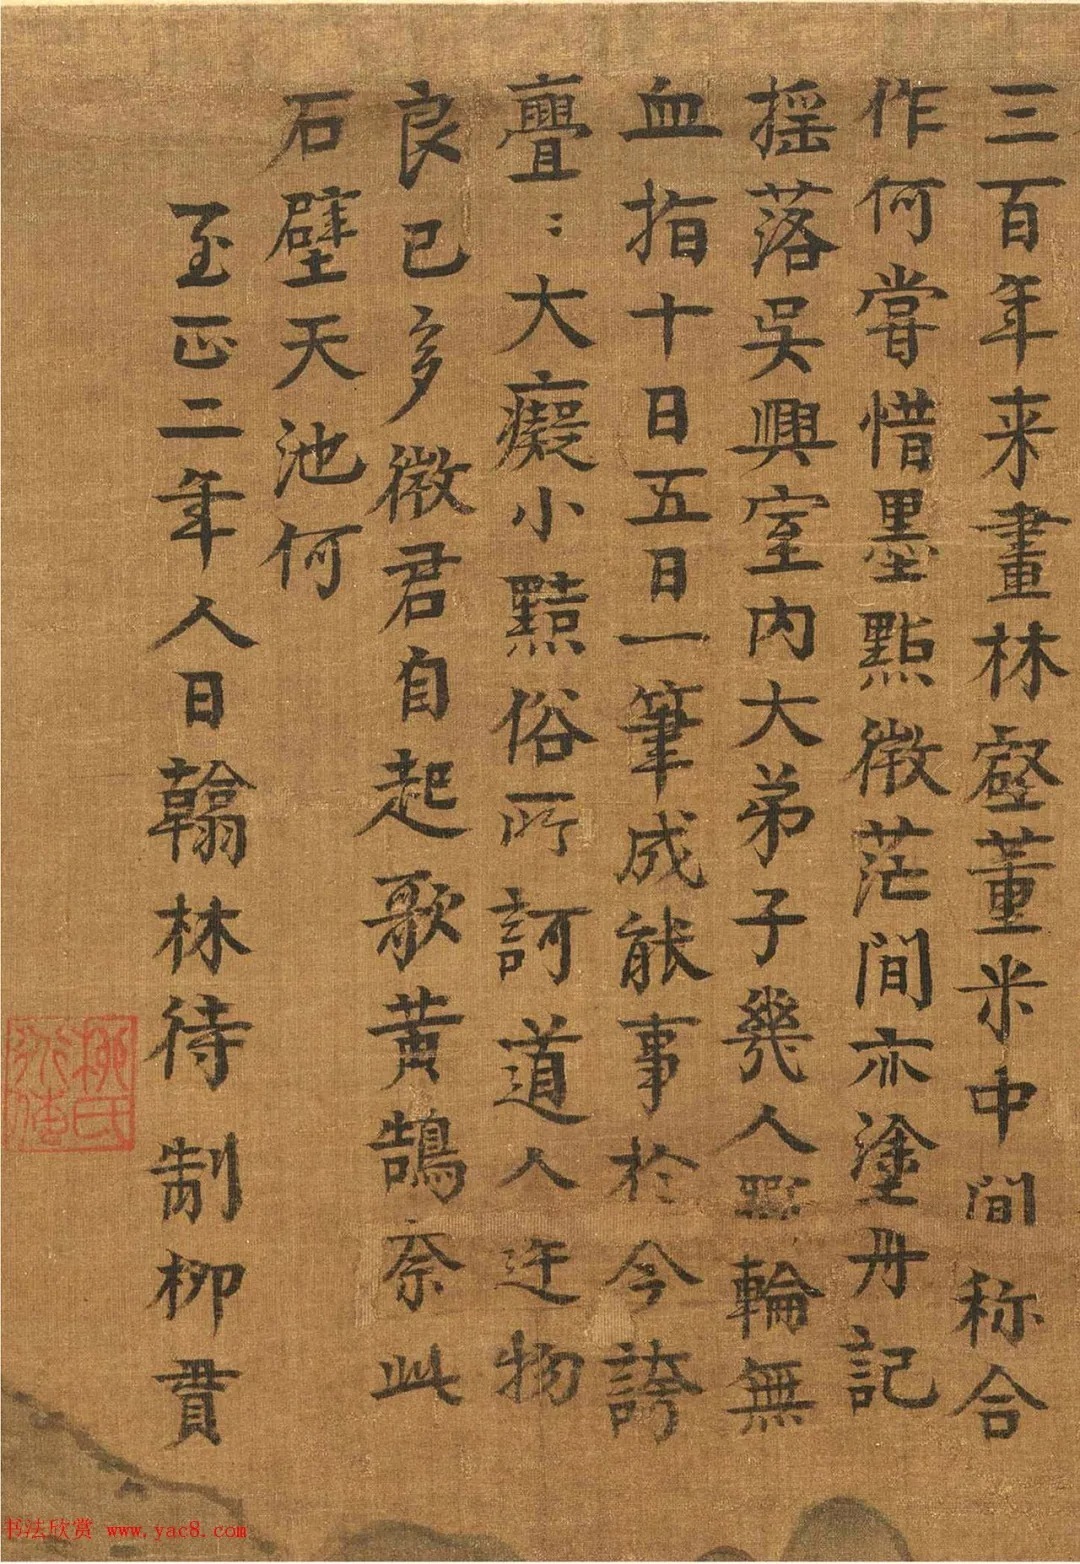 三百年来畫林壑董米中間称合
作何嘗惜墨點微茫間亦塗丹記
揺落吳興室内大弟子幾人斵輪無
血指十日五日一筆成能事於今誇
亹〻大癡小黠俗所訶道人迂物
良已多徵君自起歌黄鵠奈此
石壁天池何
至正二年人日翰林待制柳貫
书法欣赏 www.yac8.com